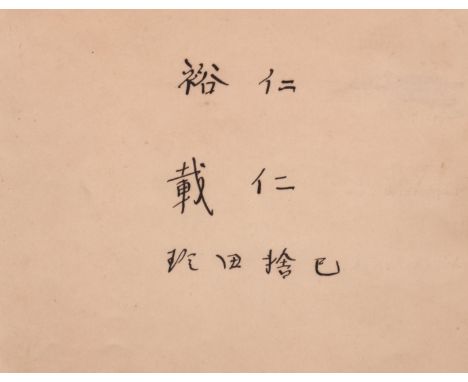 裕仁
載仁
珍田捨巳